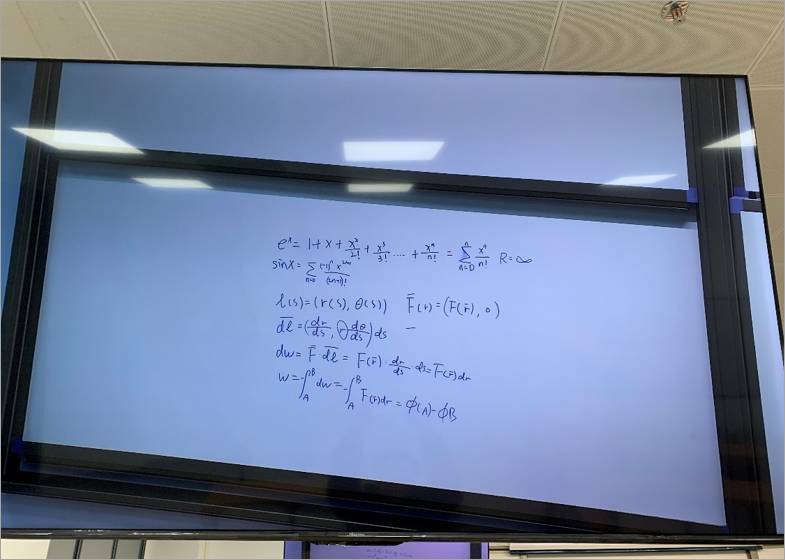 e^x = 1 + x + x²/2! + x³/3! .... + x^n/n! = ∑_{n=0}^{n} x^n/n! R = ∞
sin x = ∑_{n=0} (-1)^n x^{2n+1}/(2n+1)!
l(s) = (r(s), θ(s)) F̄(r) = (F(r̄), 0)
d̄l̄ = (dr/ds, r dθ/ds) ds –
dw = F̄ · d̄l̄ = F(r̄) · dr/ds · ds = F(r̄) dr
w = -∫_A^B dw = -∫_A^B F(r̄) dr = ϕ(A) - ϕB